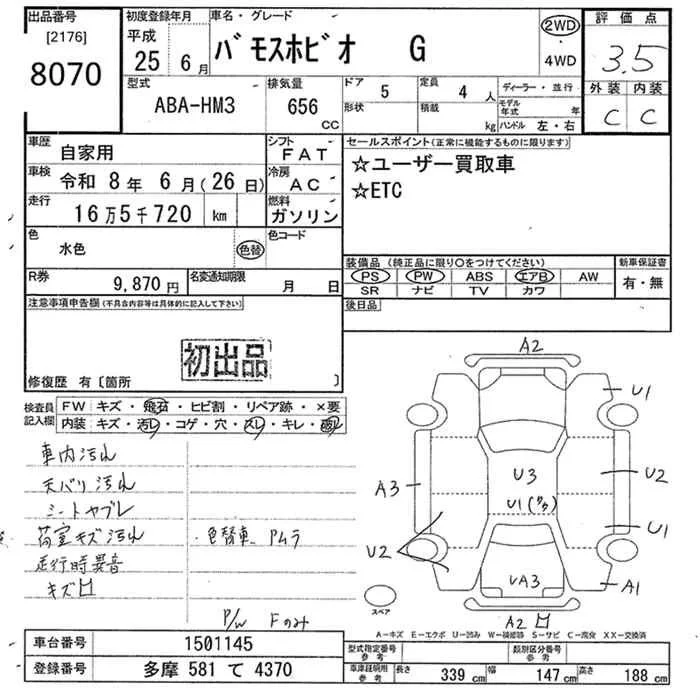 出品番号
[2176]
8070
初度登録年月
平成
25 6月
車名・グレード
バモスホビオ G
2WD
・
4WD
評価点
3.5
外装 内装
C C
型式
ABA-HM3
排気量
656
CC
ドア 5
形状
定員 4 人
積載 kg
ディーラー・並行
モデル年式 年
ハンドル 左・右
車歴
自家用
シフト
FAT
車検
令和 8年 6月(26日)
冷房
AC
走行
16万5千720 km
燃料
ガソリン
セールスポイント(正常に機能するものに限ります)
☆ユーザー買取車
☆ETC
色
水色
色替
色コード
R券
9,870円
名変通知期限
月 日
装備品(純正品に限り○をつけてください)
PS PW ABS エアB AW
SR ナビ TV カワ
新車保証書
有・無
後日品
注意事項申告欄(不具合内容等は具体的に記入して下さい)
初出品
修復歴 有〔箇所 〕
検査員
記入欄
FW キズ・飛石・ヒビ割・リペア跡・×要
内装 キズ・汚レ・コゲ・穴・スレ・キレ・破レ
車内汚れ
天バリ汚れ
シートヤブレ
荷室キズ汚れ
走行時異音
キズ凹
色替車 ムラ
P/W Fのみ
A2
U1
A3
U3
U2
U1
U1
U2
A1
A3
A2凹
スペア
A-キズ E-エクボ U-凹み W-補修跡 S-サビ C-腐食 XX-交換済
車台番号
1501145
型式指定番号
参考
類別区分番号
参考
登録番号
多摩 581 て 4370
車庫証明用
参考
長さ 339 cm 幅 147 cm 高さ 188 cm